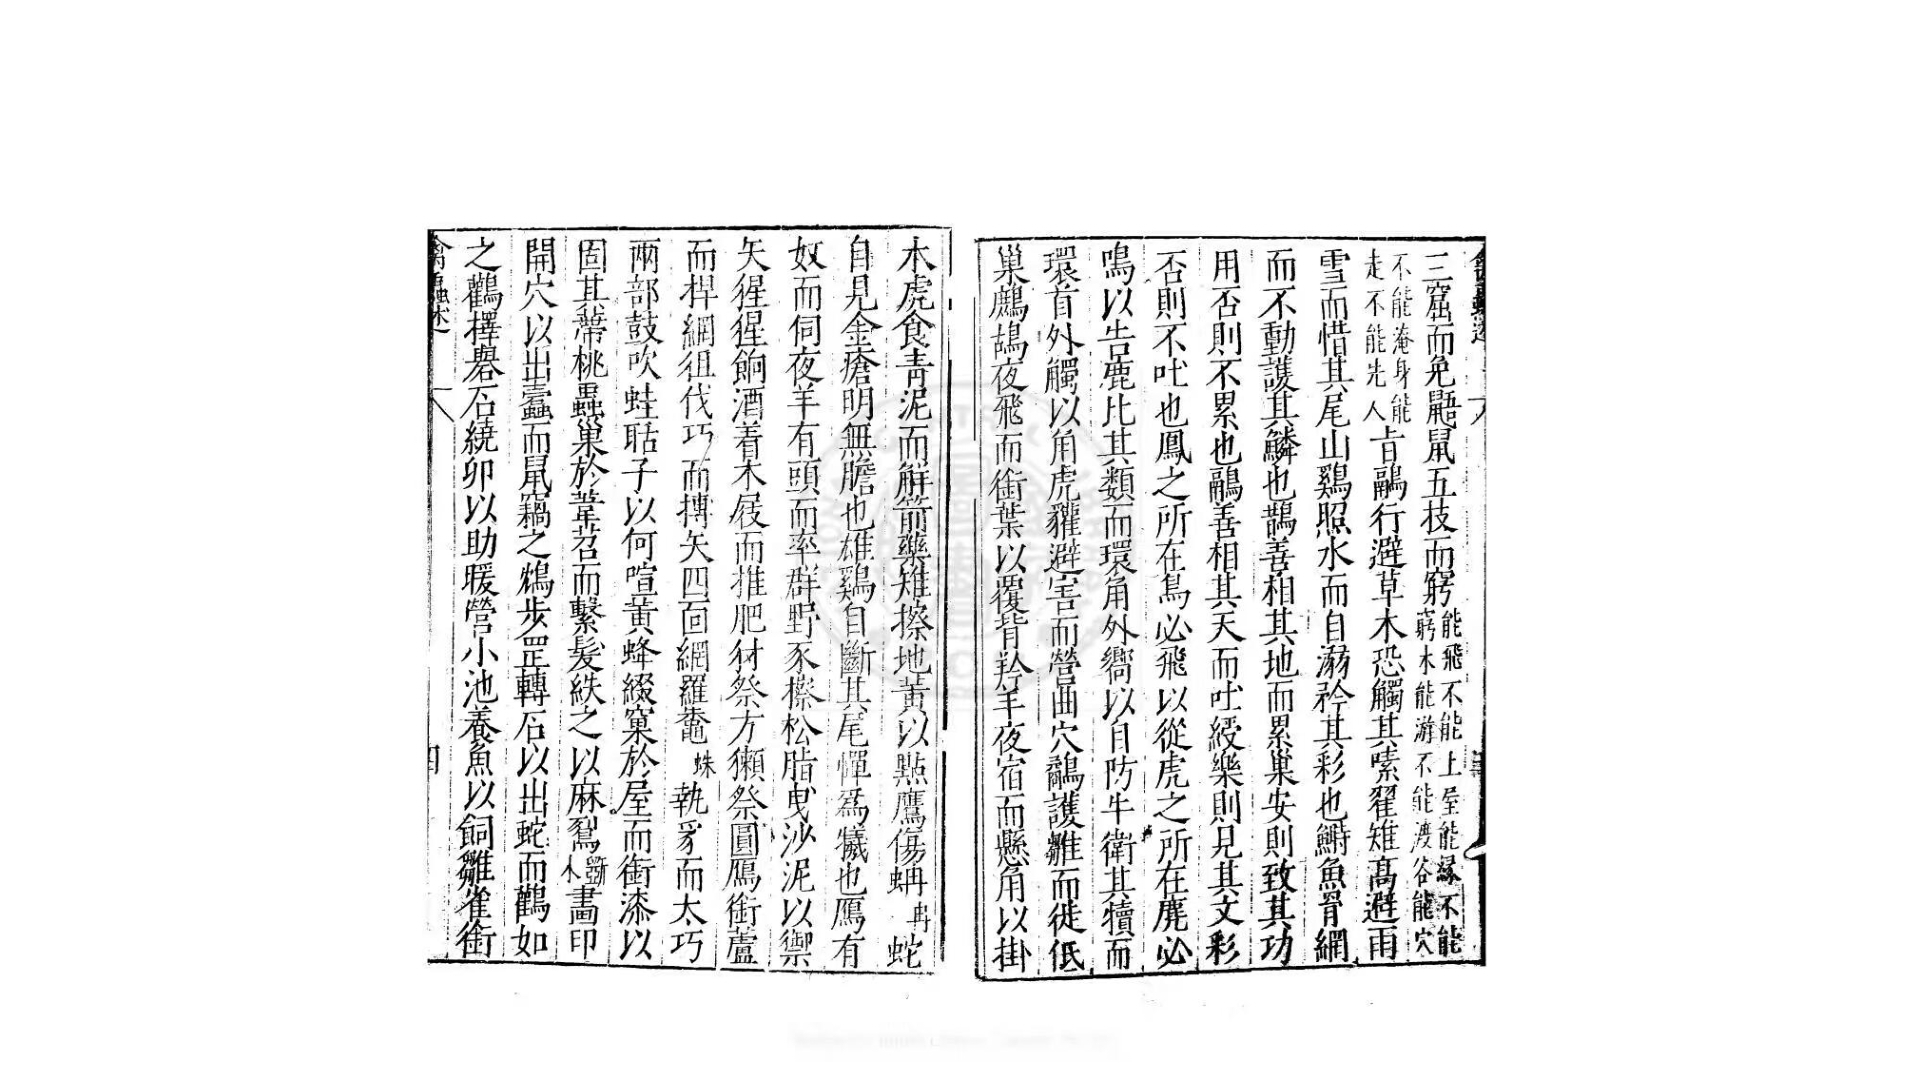 三窟而免鼯鼠五技而窮能飛不能上屋能緣不能窮木能游不能渡谷能穴
不能淹身能走不能先人上旨鷸行避草木恐觸其嗉翟雉高避雨
雪而惜其尾山鷄照水而自溺矜其彩也鰣魚骨網
而不動護其鱗也鵲善相其地而累巢安則致其功
用否則不累也鷸善相其天而吐綬樂則見其文彩
否則不吐也鳳之所在鳥必飛以從虎之所在鹿必
鳴以告鹿比其類而環角外嚮以自防牛衛其犢而
環首外觸以角虎貛避害而營曲穴鸐護雛而徙低
巢鷓鴣夜飛而銜葉以覆背羚羊夜宿而懸角以掛
木虎食青泥而解箭藥雉擦地黃以點鷹傷蚺冉蛇
自見金瘡明無膽也雄鷄自斷其尾憚爲犧也鴈有
奴而伺夜羊有頭而率群野豕擦松脂曳沙泥以禦
矢猩猩餉酒着木屐而推肥豺祭方獺祭圓鴈銜蘆
而捍網徂伐巧而搏矢四面網羅鼄蛛執豸而太巧
兩部鼓吹蛙聒子以何喧黃蜂綴窠於屋而銜漆以
固其蔕桃蟲巢於葦苕而繫髮紩之以麻鴷斲木畫印
開穴以出蠹而鼠竊之鴆步罡轉石以出蛇而鸛如
之鸛擇礜石繞卵以助暖營小池養魚以飼雛雀銜
禽蟲述
四